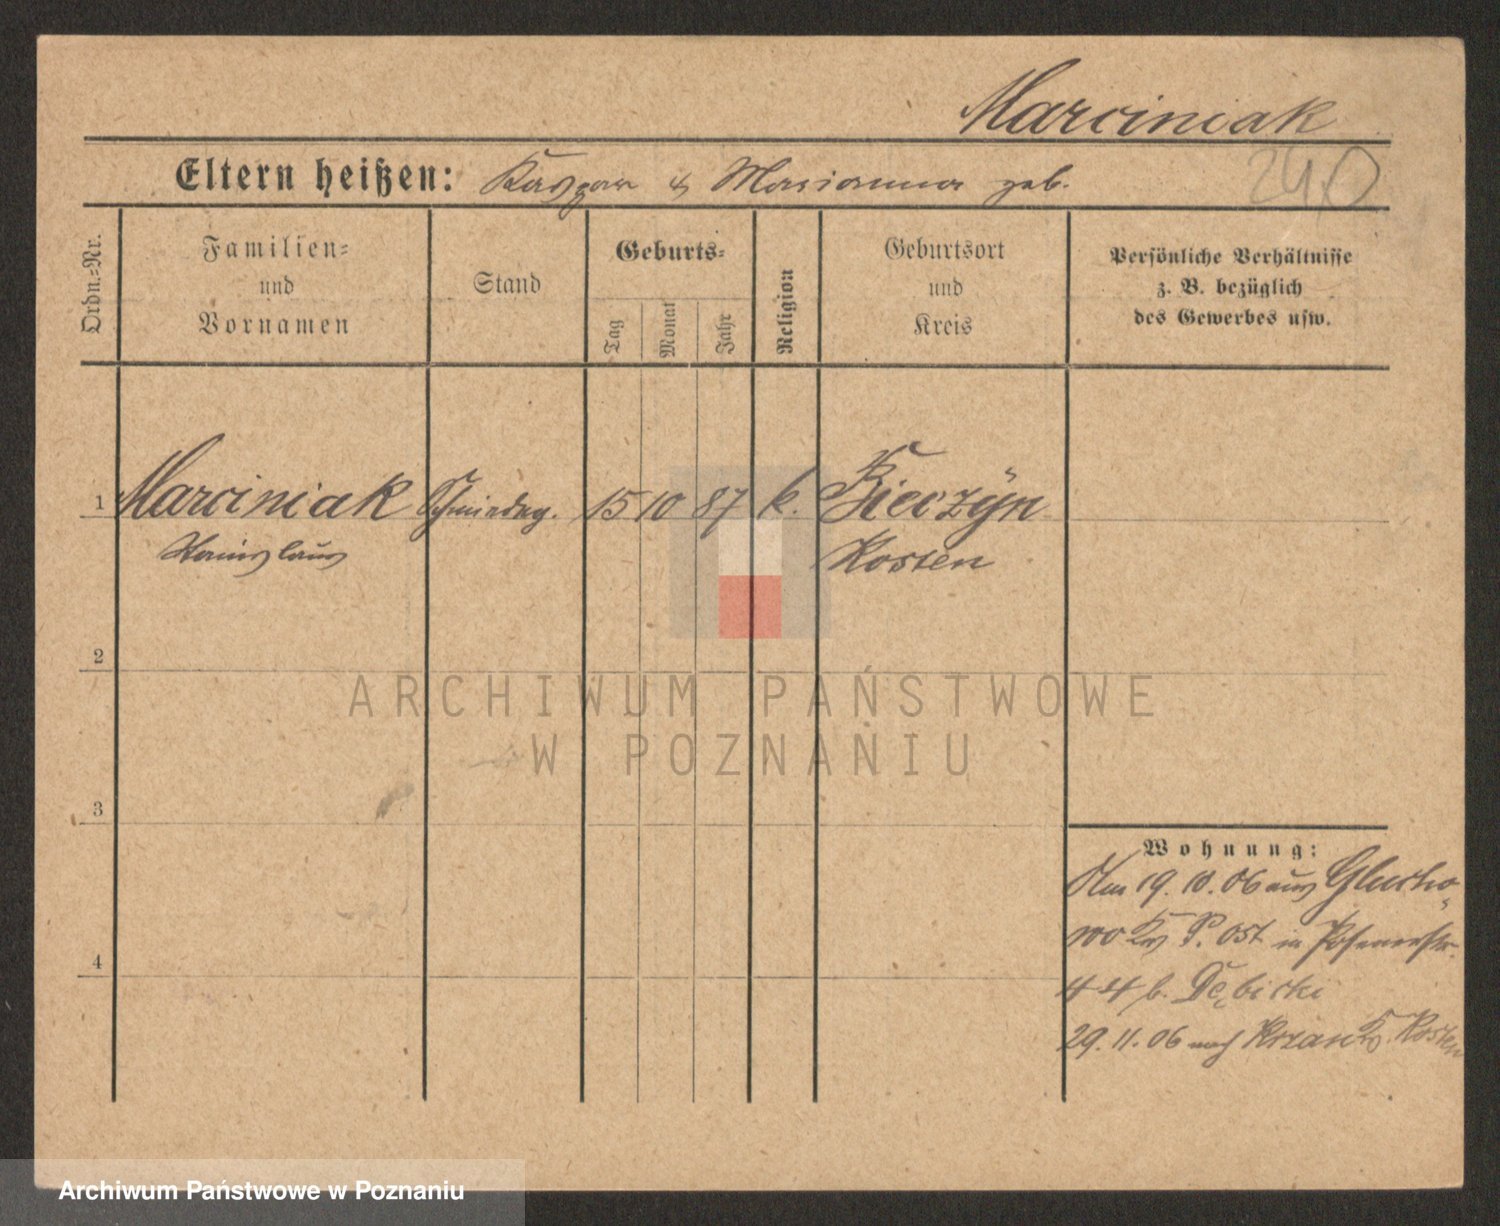 Marciniak
240
Eltern heißen: Kaspar & Marianna geb.
Ordn.-Nr.
Familien- und Vornamen
Stand
Geburts-
Tag
Monat
Jahr
Religion
Geburtsort und Kreis
Persönliche Verhältnisse
z. B. bezüglich
des Gewerbes usw.
1 Marciniak Schmiedeg. 15 10 87 k. Kieczyn
Stanislaus Kosten
2
3
4
Wohnung:
Am 19. 10. 06 aus Glucho-
wo Krs P. Ost in Posenerstr.
44 b. Dębicki
29. 11. 06 nach Krzan Kr. Kosten
ARCHIWUM PAŃSTWOWE
W POZNANIU
Archiwum Państwowe w Poznaniu